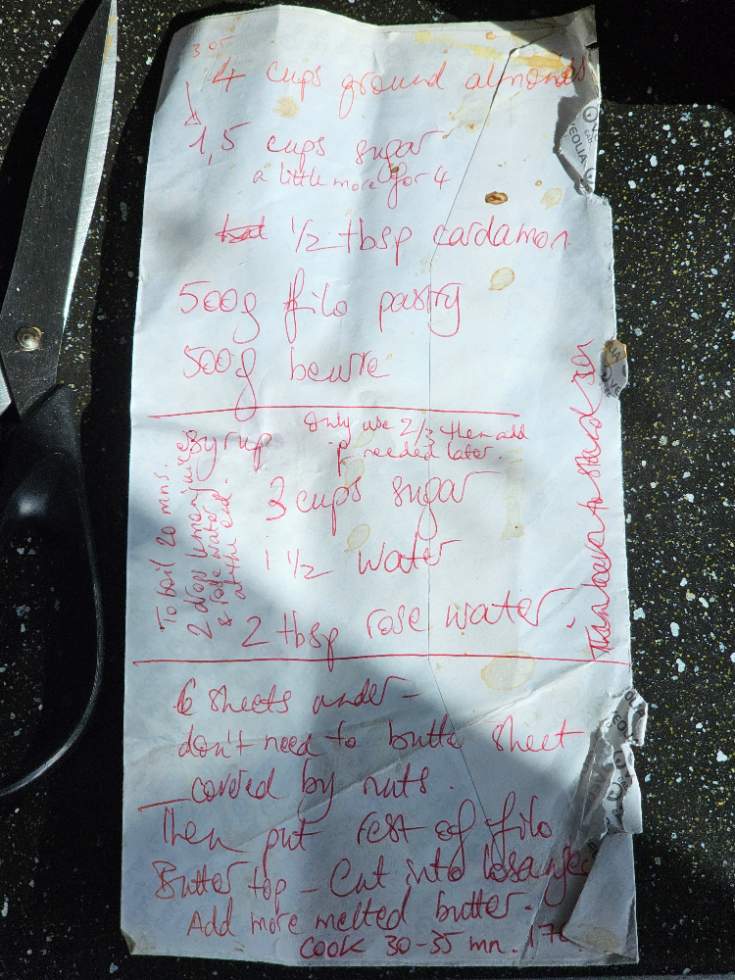 3 or
4 cups ground almonds
1,5 cups sugar
a little more for 4
1/2 tbsp cardamon
500g filo pastry
500g beurre
Syrup
Only use 2/3 then add
if needed later.
3 cups sugar
1 1/2 water
2 tbsp rose water
To boil 20 mns.
2 drops lemon juice
& rose water
at the end.
6 sheets under -
don't need to butter sheet
covered by nuts.
Then put rest of filo
Butter top - Cut into losanges
Add more melted butter.
Cook 30-35 mn.
EOLIA